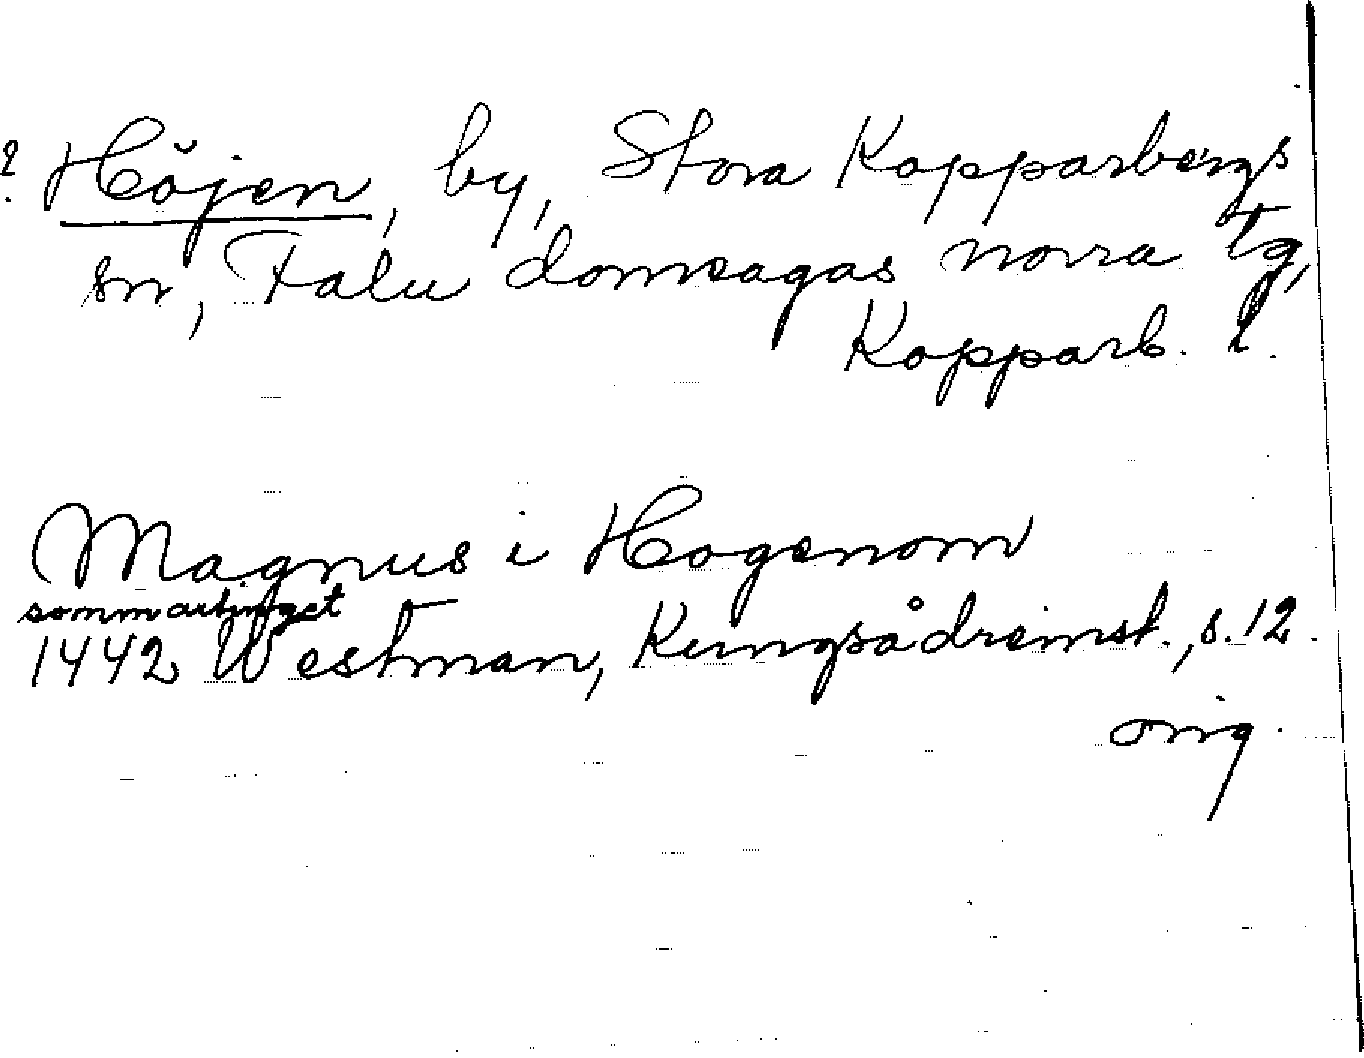 ? Höjen, by, Stora Kopparbergs
sn, Falu domsagas norra tg,
Kopparb. l.
Magnus i Hogenom
sommartinget
1442 Westman, Kungsådreinst., s. 12.
orig.